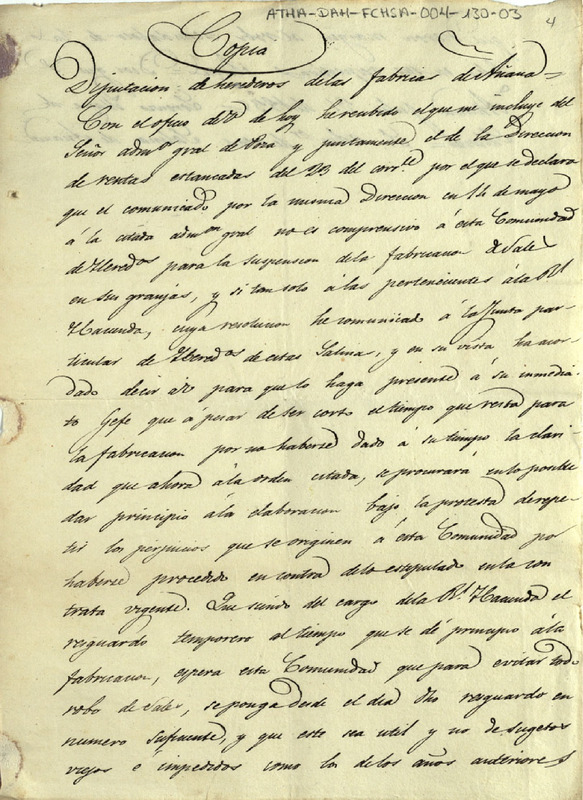 ATHA-DAH-FCHSA-004-130-03
4
Copia
Diputacion de herederos de las fabricas de Añana =
Con el oficio de V de hoy he recibido el que me incluye del
Señor admor gral de Poza y juntamente el de la Direccion
de rentas estancadas del 23 del corrte por el que se declara
que el comunicado por la misma Direccion en 14 de mayo
á la citada admon gral no es comprensivo á esta Comunidad
de Heredos para la suspension de la fabricacion de Sales
en sus granjas, y si tan solo a las pertenecientes á la Rl
Hacienda, cuya resolucion he comunicado á la Junta par-
ticular de Heredos de estas Salinas, y en su vista ha acor-
dado decir a V para que lo haga presente á su inmedia-
to Gefe que á pesar de ser corto el tiempo que resta para
la fabricacion por no haberse dado á su tiempo la clari-
dad que ahora á la orden citada, se procurará en lo posible
dar principio á la elaboracion bajo la protesta de repe-
tir los perjuicios que se originen á esta Comunidad por
haberse procedido en contra de lo estipulado en la con
trata vigente. Que siendo del cargo de la Rl Hacienda el
resguardo temporero al tiempo que se dé principio á la
fabricacion, espera esta Comunidad que para evitar todo
robo de Sales, se ponga desde el dia dho resguardo en
numero suficiente, y que este sea util y no de sugetos
viejos é impedidos como los de los años anteriores